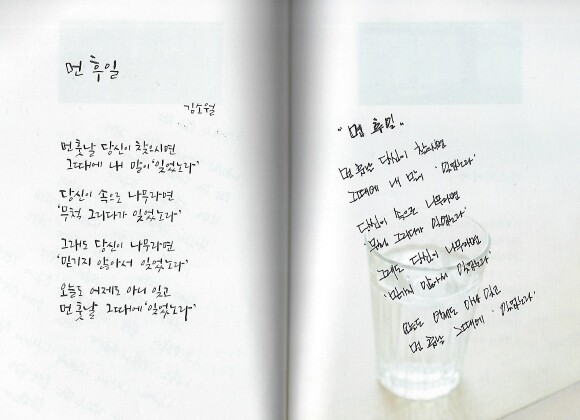 먼 후일
김소월
먼 훗날 당신이 찾으시면
그때에 내 말이 '잊었노라'
당신이 속으로 나무라면
'무척 그리다가 잊었노라'
그래도 당신이 나무라면
'믿기지 않아서 잊었노라'
오늘도 어제도 아니 잊고
먼 훗날 그때에 '잊었노라'
"먼 후일"
먼 훗날 당신이 찾으시면
그때에 내 말이 '잊었노라'
당신이 속으로 나무라면
'무척 그리다가 잊었노라'
그래도 당신이 나무라면
'믿기지 않아서 잊었노라'
오늘도 어제도 아니 잊고
먼 훗날 그때에 '잊었노라'